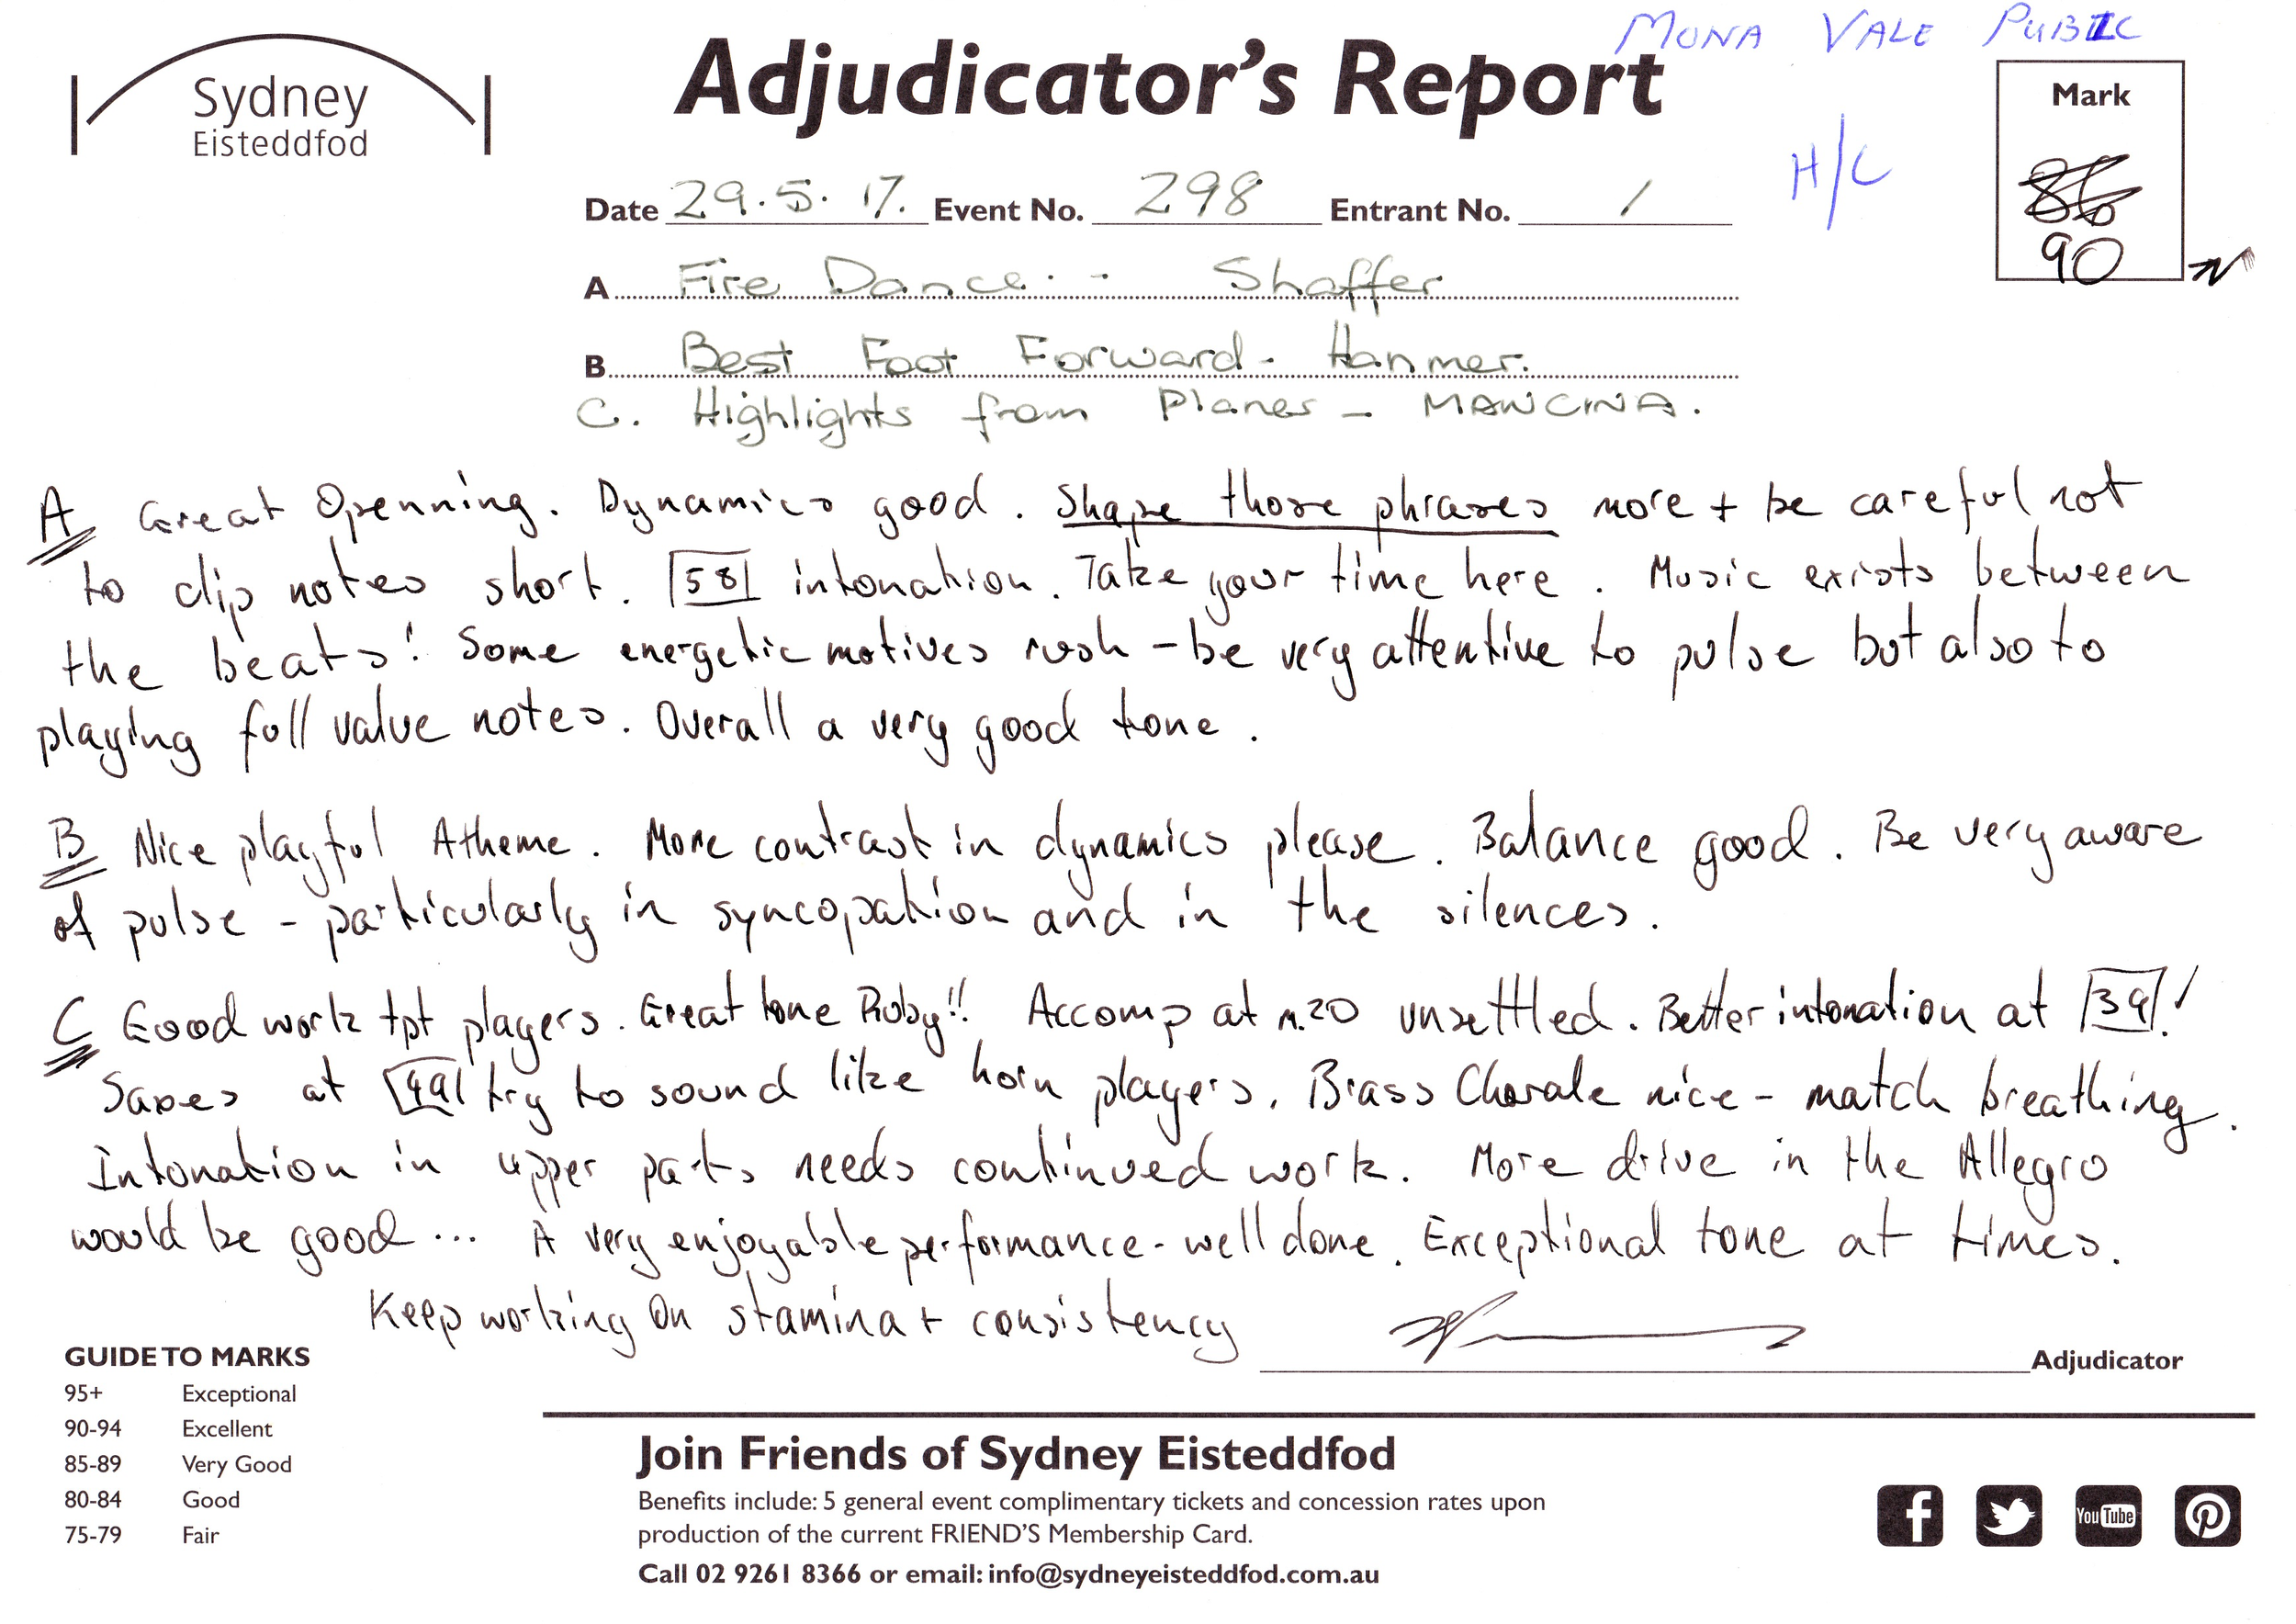 MONA VALE PUBLIC
Sydney
Eisteddfod
Adjudicator's Report
H/C
Mark
86
90
Date 29.5.17. Event No. 298 Entrant No. 1
A Fire Dance - Shaffer
B Best Foot Forward - Hanmer.
C. Highlights from Planes - MANCINA.
A Great Openning. Dynamics good. Shape those phrases more + be careful not
to clip notes short. 58 intonation. Take your time here. Music exists between
the beats! Some energetic motives rush - be very attentive to pulse but also to
playing full value notes. Overall a very good tone.
B Nice playful A theme. More contrast in dynamics please. Balance good. Be very aware
of pulse - particularly in syncopation and in the silences.
C Good work tpt players. Great tone Ruby!! Accomp at m.20 unsettled. Better intonation at 39!
Saxes at 49 try to sound like horn players. Brass Chorale nice - match breathing.
Intonation in upper parts needs continued work. More drive in the Allegro
would be good ... A very enjoyable performance - well done. Exceptional tone at times.
Keep working on stamina + consistency
Adjudicator
GUIDE TO MARKS
95+ Exceptional
90-94 Excellent
85-89 Very Good
80-84 Good
75-79 Fair
Join Friends of Sydney Eisteddfod
Benefits include: 5 general event complimentary tickets and concession rates upon
production of the current FRIEND'S Membership Card.
Call 02 9261 8366 or email: info@sydneyeisteddfod.com.au
You Tube